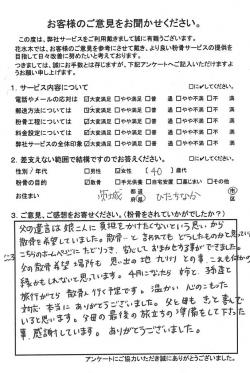 お客様のご意見をお聞かせください。
この度は、弊社サービスをご利用戴きまして誠に有難うございます。
花水木では、お客様のご意見を参考にさせて戴き、より良い粉骨サービスの提供を
目指して日々改善に努めたいと考えております。
つきましては、誠にお手数とは存じますが、下記アンケートへご記入いただけますよ
うお願い申し上げます。
1. サービス内容について □に✓してください。
電話やメールの応対は ☑大変満足 □やや満足 □普 通 □やや不満 □不 満
郵送方法について ☑大変満足 □やや満足 □普 通 □やや不満 □不 満
粉骨工程について ☑大変満足 □やや満足 □普 通 □やや不満 □不 満
料金設定について ☑大変満足 □やや満足 □普 通 □やや不満 □不 満
弊社サービスの全体印象 ☑大変満足 □やや満足 □普 通 □やや不満 □不 満
2. 差支えない範囲で結構ですのでお答えください。 □に✓してください。
性別／年代 □男性 ☑女性 ( 40 )歳代
粉骨の目的 ☑散骨 □手元供養 □自宅安置 □墓じまい □その他
お住まい 茨城 都道府県 ひたちなか 市区
3. ご意見、ご感想をお寄せください。（粉骨をされていかがでしたか？）
父の遺言は娘二人に負担をかけたくないという思いから
散骨を希望していました。散骨と言われてもどうしたものかと思い
こちらのホームページにたどりつき
父の散骨希望場所も思い出の地 九州
縁かもしれないと思います。今月になり 姉と
旅行がてら散骨へ行く予定です。温かい心のこもった
対応 本当にありがとうございました。父と母もきっと喜んで
いると思います。父母の最後の旅立ちの準備をして下さった
事、感謝しています。ありがとうございました。
アンケートにご協力いただき誠にありがとうございました。